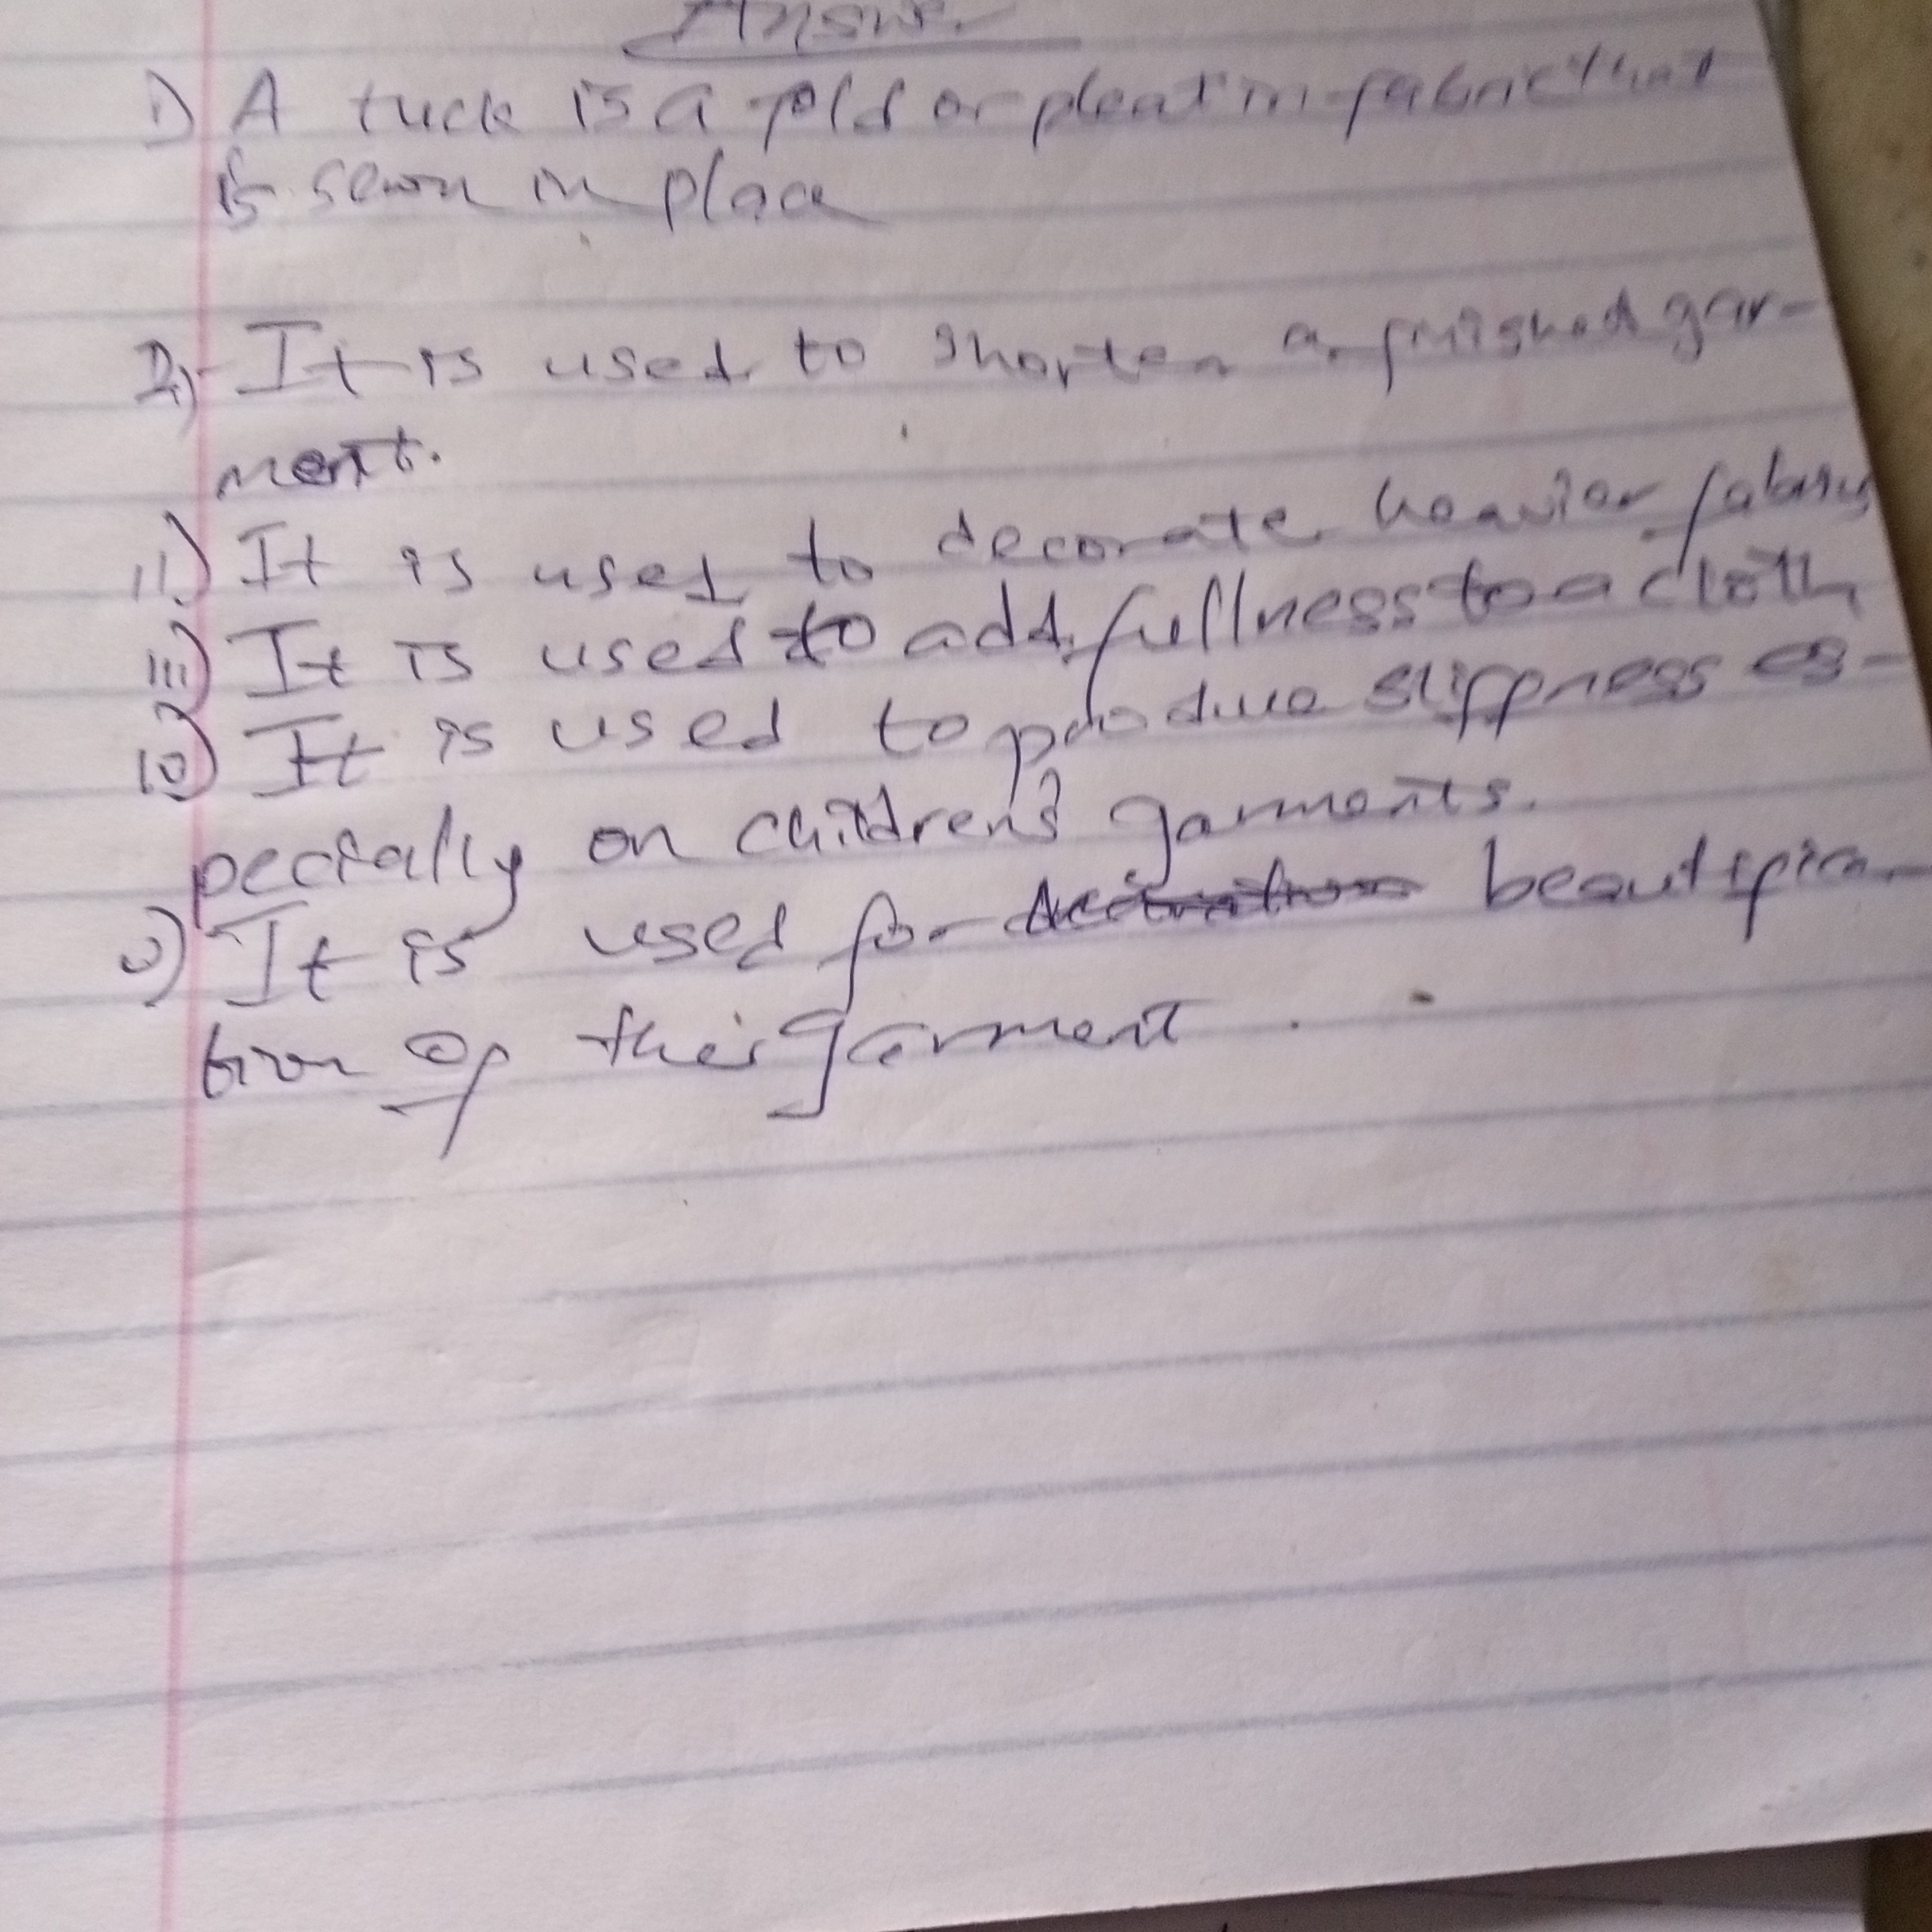 Answer
1) A tuck is a fold or pleat in fabric that
is sewn in place
2) It is used to shorten a finished gar-
ment.
ii) It is used to decorate heavier fabrics
iii) It is used to add fullness to a cloth
iv) It is used to produce stiffness es-
pecially on children's garments.
v) It is used for beautifica-
tion of the garment.